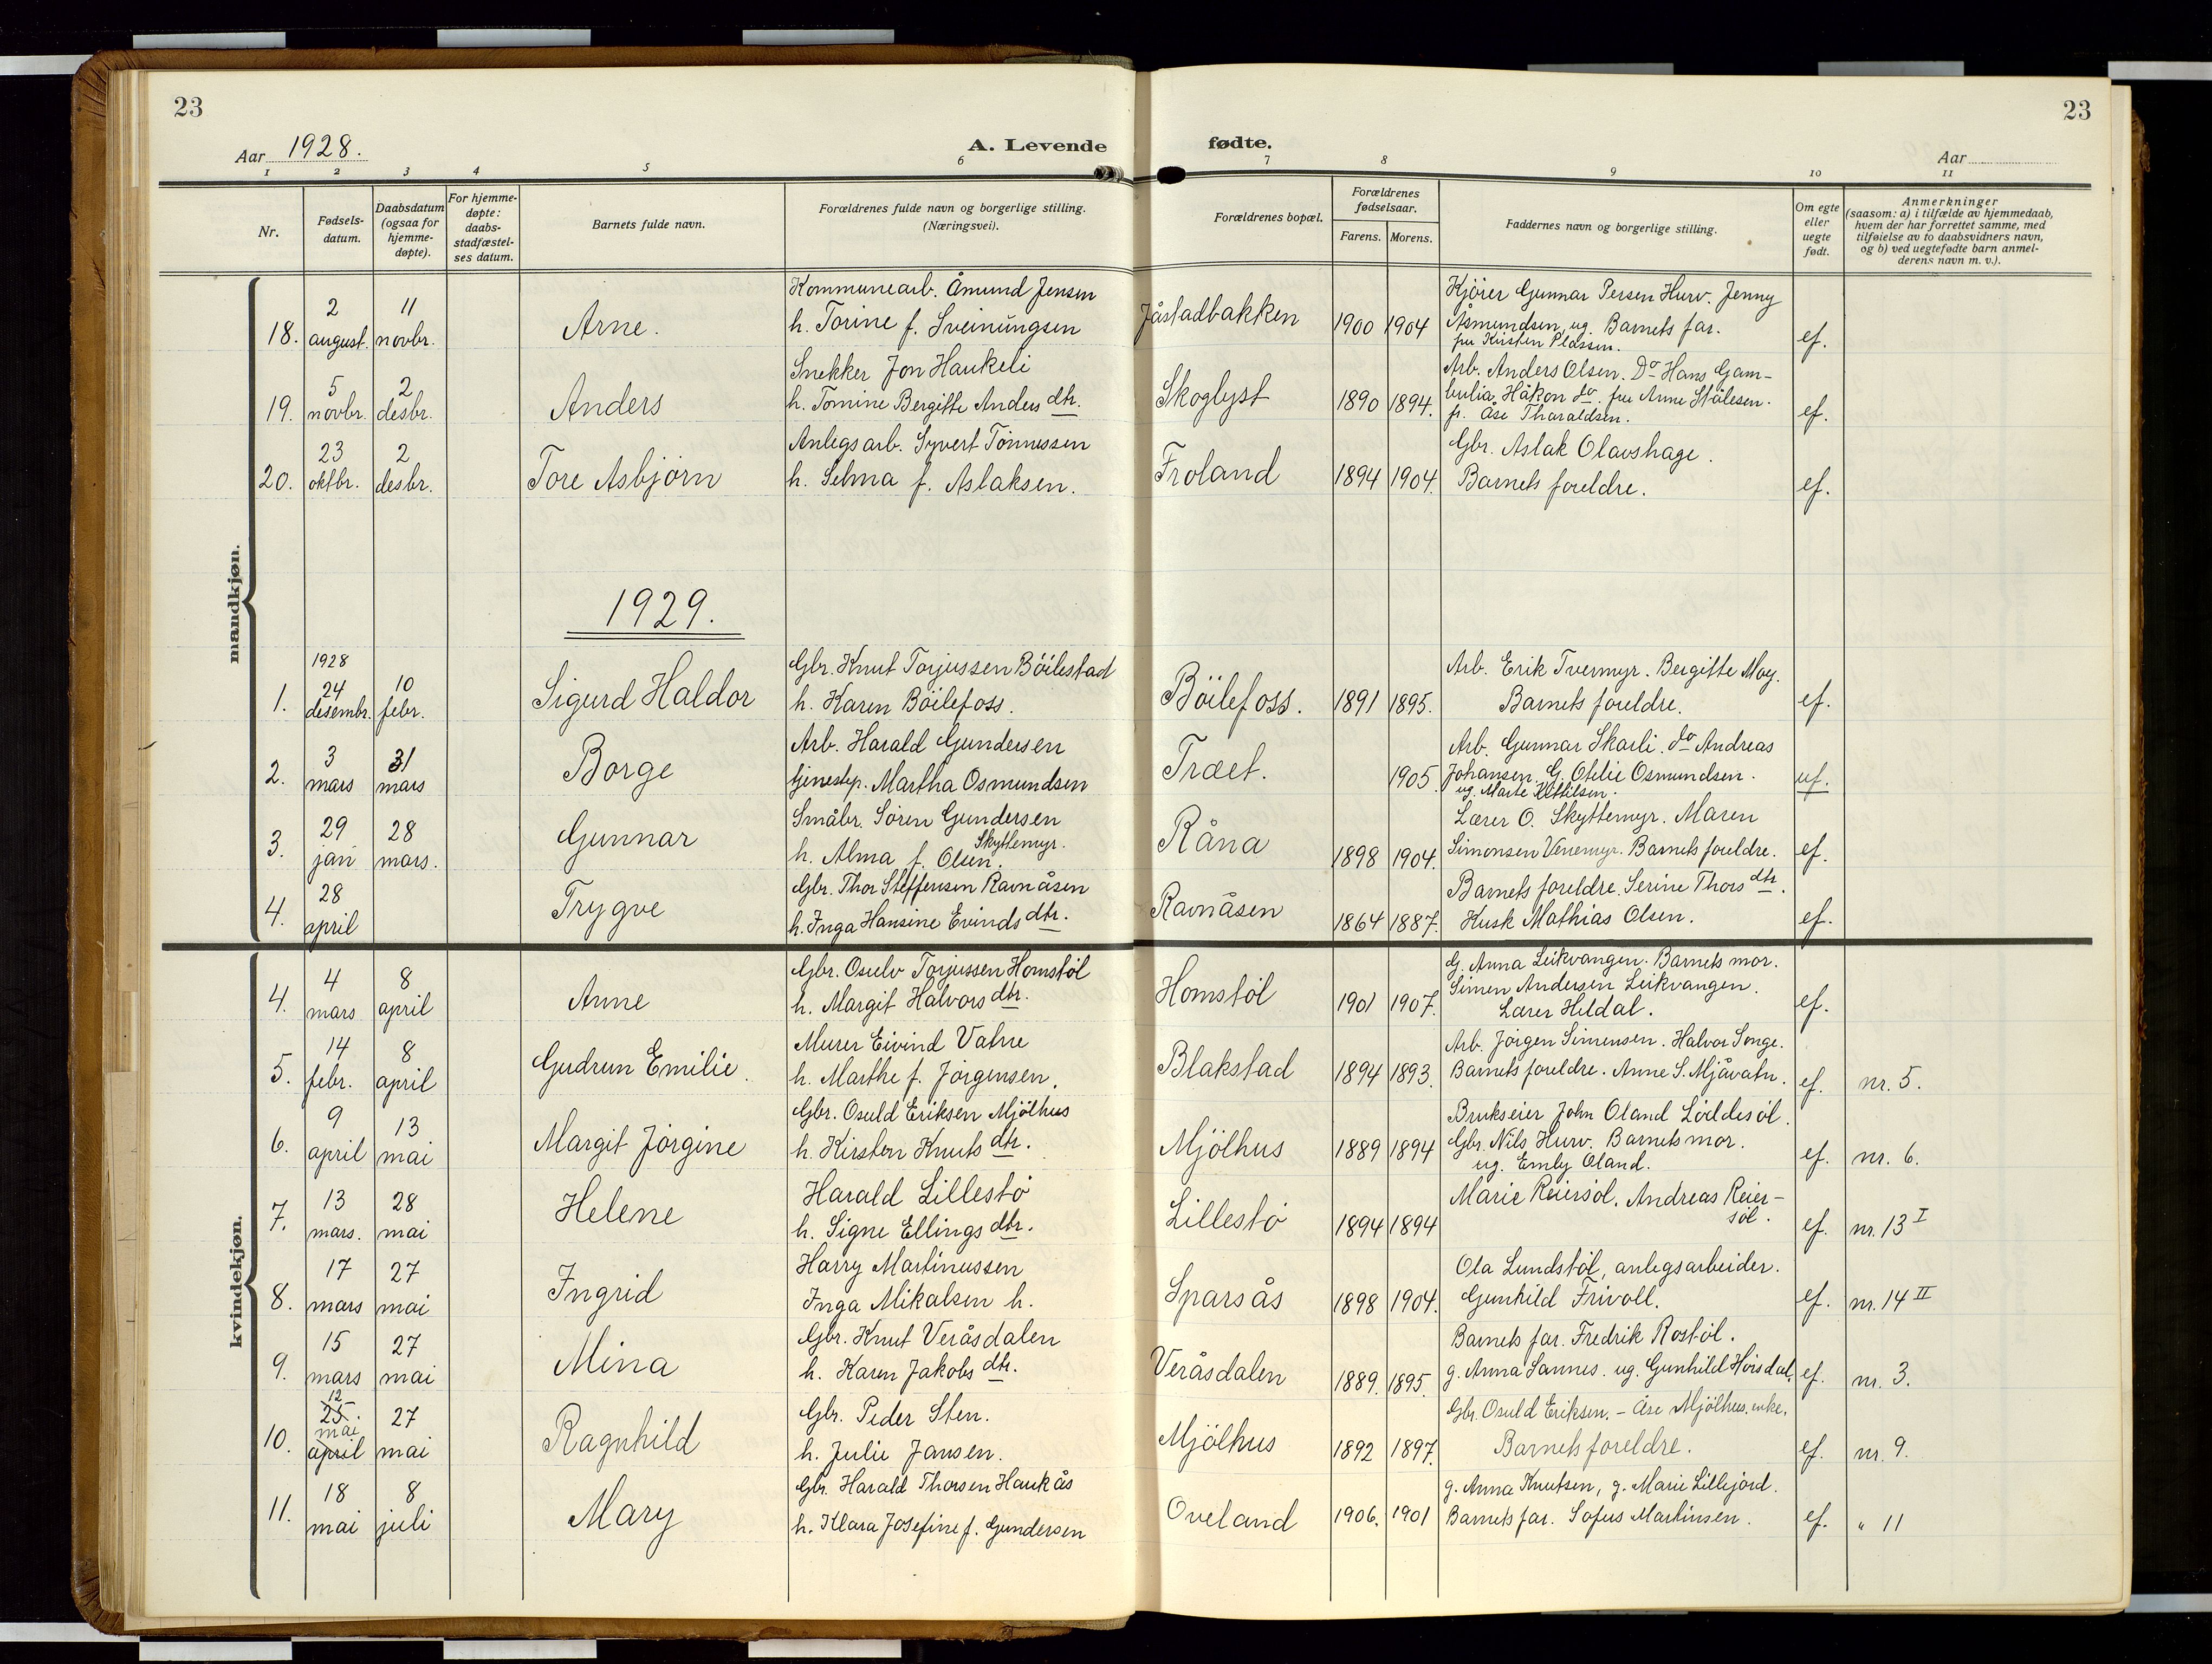 23
23
Aar 1928.
A. Levende fødte.
Aar
1 2 3 4 5 6 7 8 9 10 11
Nr.
Fødsels-
datum.
Daabsdatum
(ogsaa for
hjemme-
døpte).
For hjemme-
døpte:
daabs-
stadfæstel-
ses datum.
Barnets fulde navn.
Forældrenes fulde navn og borgerlige stilling.
(Næringsvei).
Forældrenes bopæl.
Forældrenes
fødselsaar.
Farens. Morens.
Faddernes navn og borgerlige stilling.
Om egte
eller
uegte
født.
Anmerkninger
(saasom: a) i tilfælde av hjemmedaab,
hvem der har forrettet samme, med
tilføielse av to daabsvidners navn,
og b) ved uegtefødte barn anmel-
derens navn m. v.).
mandkjøn.
Kommunearb. Åmund Jensen
Kjører Gunnar Persen Hurv. Jenny
2 11
18. august. novbr. Arne. h. Torine f. Sveinungsen Jåstadbakken 1900 1904 Åsmundsen, ug. Barnets far. ef.
fru Kristen Plassen.
Snekker Jon Haukeli
Arb. Anders Olsen. Do Hans Gam-
5 2
19. novbr. desbr. Anders h. Tomine Bergitte Anders dtr. Skoglyst 1890 1894. Håkon do. fru Anne Stålesen. ef.
fr. Åse Tharaldsen.
Anlegsarb. Syvert Tönnessen
Gbr. Aslak Olavshage.
23 2
20. oktbr. desbr. Tore Asbjörn h. Selma f. Aslaksen. Froland 1894 1904. Barnets foreldre. ef.
1929.
1928
Gbr. Knut Torjussen Böilestad
Arb. Erik Tvermyr. Bergitte Moy.
24 10
1. desembr. febr. Sigurd Haldor h. Karen Böilefoss. Böilefoss. 1891 1895. Barnets foreldre. ef.
Arb. Harald Gundersen
Arb. Gunnar Skarli. do Andreas
3 31
2. mars mars Borge tjenestep. Martha Osmundsen Træet. 1905 Johansen. G. Otilie Osmundsen. uf.
ug. Marte Kittilsen.
Småbr. Sören Gundersen
Lærer O. Skyttemyr. Maren
29 28
Skyttemyr.
3. jan mars. Gunnar h. Alma f. Olsen. Råna 1898 1904. Simonsen Venemyr. Barnets foreldre. ef.
Gbr. Thor Steffensen Ravnåsen
Barnets foreldre. Serine Thors dtr.
28
4. april Trygve h. Inga Hansine Evinds dtr. Ravnåsen 1864 1887. Kusk Mathias Olsen. ef.
kvindekjøn.
Gbr. Osulv Torjussen Homstöl
G. Anna Leikvangen. Barnets mor.
4 8
Simen Andersen Leikvangen.
4. mars april Anne h. Margit Halvors dtr. Homstöl 1901 1907. Lærer Heldal. ef.
Murer Eivind Vatne
Arb. Jörgen Simensen. Halvor Songe.
14 8
5. febr. april Gudrun Emilie. h. Marthe f. Jörgensen. Blakstad 1894 1893. Barnets foreldre. Anne S. Mjåvatn. ef. nr. 5.
Gbr. Osuld Eriksen Mjölhus
Brukseier John Oland Löddesöl.
9 13
6. april mai Margit Jörgine h. Kirsten Knuts dtr. Mjölhus 1889 1894 Gbr. Nils Hurv. Barnets mor. ef. nr. 6.
ug. Emly Oland.
Harald Lillestö
Marie Reiersöl. Andreas Reier-
13 28
söl.
7. mars. mai Helene h. Signe Ellings dtr. Lillestö 1894 1894 ef. nr. 13 I
Harry Martinussen
Ola Lundstöl, anlegsarbeider.
17 27
8. mars mai Ingrid Inga Mikalsen h. Sparsås 1898 1904. Gunhild Frivoll. ef. nr. 14 II
Gbr. Knut Veråsdalen
Barnets far. Fredrik Rostöl.
15 27
9. mars mai Mina h. Karen Jakobs dtr. Veråsdalen 1889. 1895. g. Anna Sannes. ug. Gunhild Höisdal. ef. nr. 3.
12
25.
mai
Gbr. Peder Sten.
Gbr. Osuld Eriksen. - Åse Mjölhus. enke.
27
10. april mai Ragnhild h. Julie Jansen. Mjölhus 1892 1897. Barnets foreldre. ef. nr. 9.
Gbr. Harald Thorsen Haukås
g. Anna Knutsen, g. Marie Lillejord.
18 8
11. mai juli Mary h. Klara Josefine f. Gundersen Oveland 1906. 1901 Barnets far. Sofus Martinsen. ef. " 11